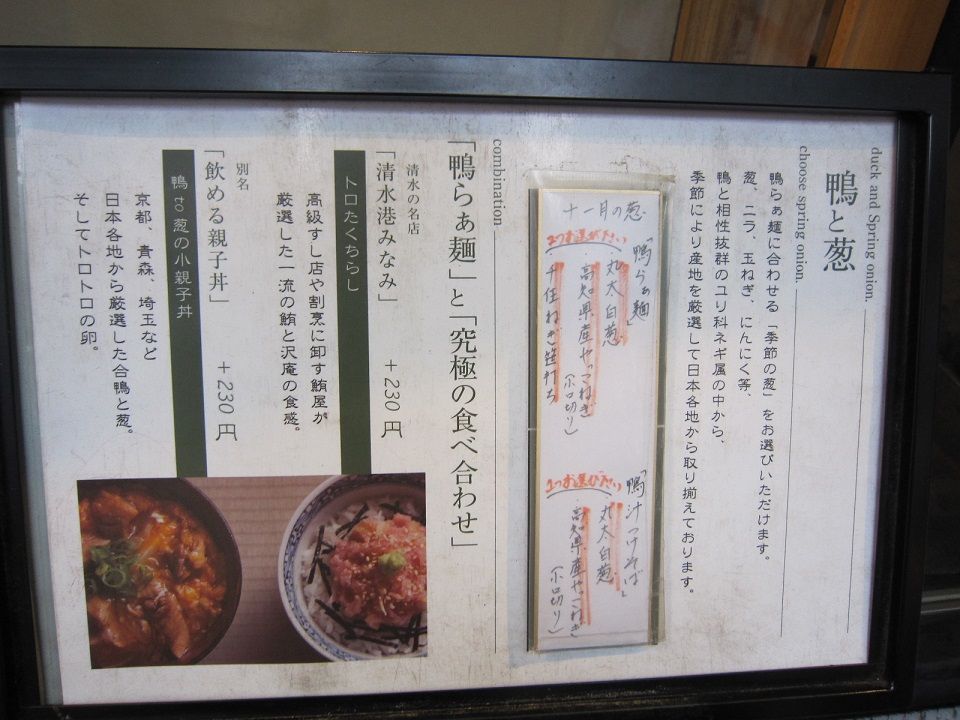 duck and Spring onion.
鴨と葱
choose spring onion.
鴨らぁ麺に合わせる「季節の葱」をお選びいただけます。
葱、ニラ、玉ねぎ、にんにく等、
鴨と相性抜群のユリ科ネギ属の中から、
季節により産地を厳選して日本各地から取り揃えております。
十一月の葱
「鴨らぁ麺」
2つお選び下さい
丸太白葱
高知県産やっこねぎ
(小口切り)
千住ねぎ笹打ち
「鴨汁つけそば」
1つお選び下さい
丸太白葱
高知県産やっこねぎ
(小口切り)
combination
「鴨らぁ麺」と「究極の食べ合わせ」
清水の名店
「清水港みなみ」 +230円
トロたくちらし
高級すし店や割烹に卸す鮪屋が
厳選した一流の鮪と沢庵の食感。
別名
「飲める親子丼」 +230円
鴨to葱の小親子丼
京都、青森、埼玉など
日本各地から厳選した合鴨と葱。
そしてトロトロの卵。